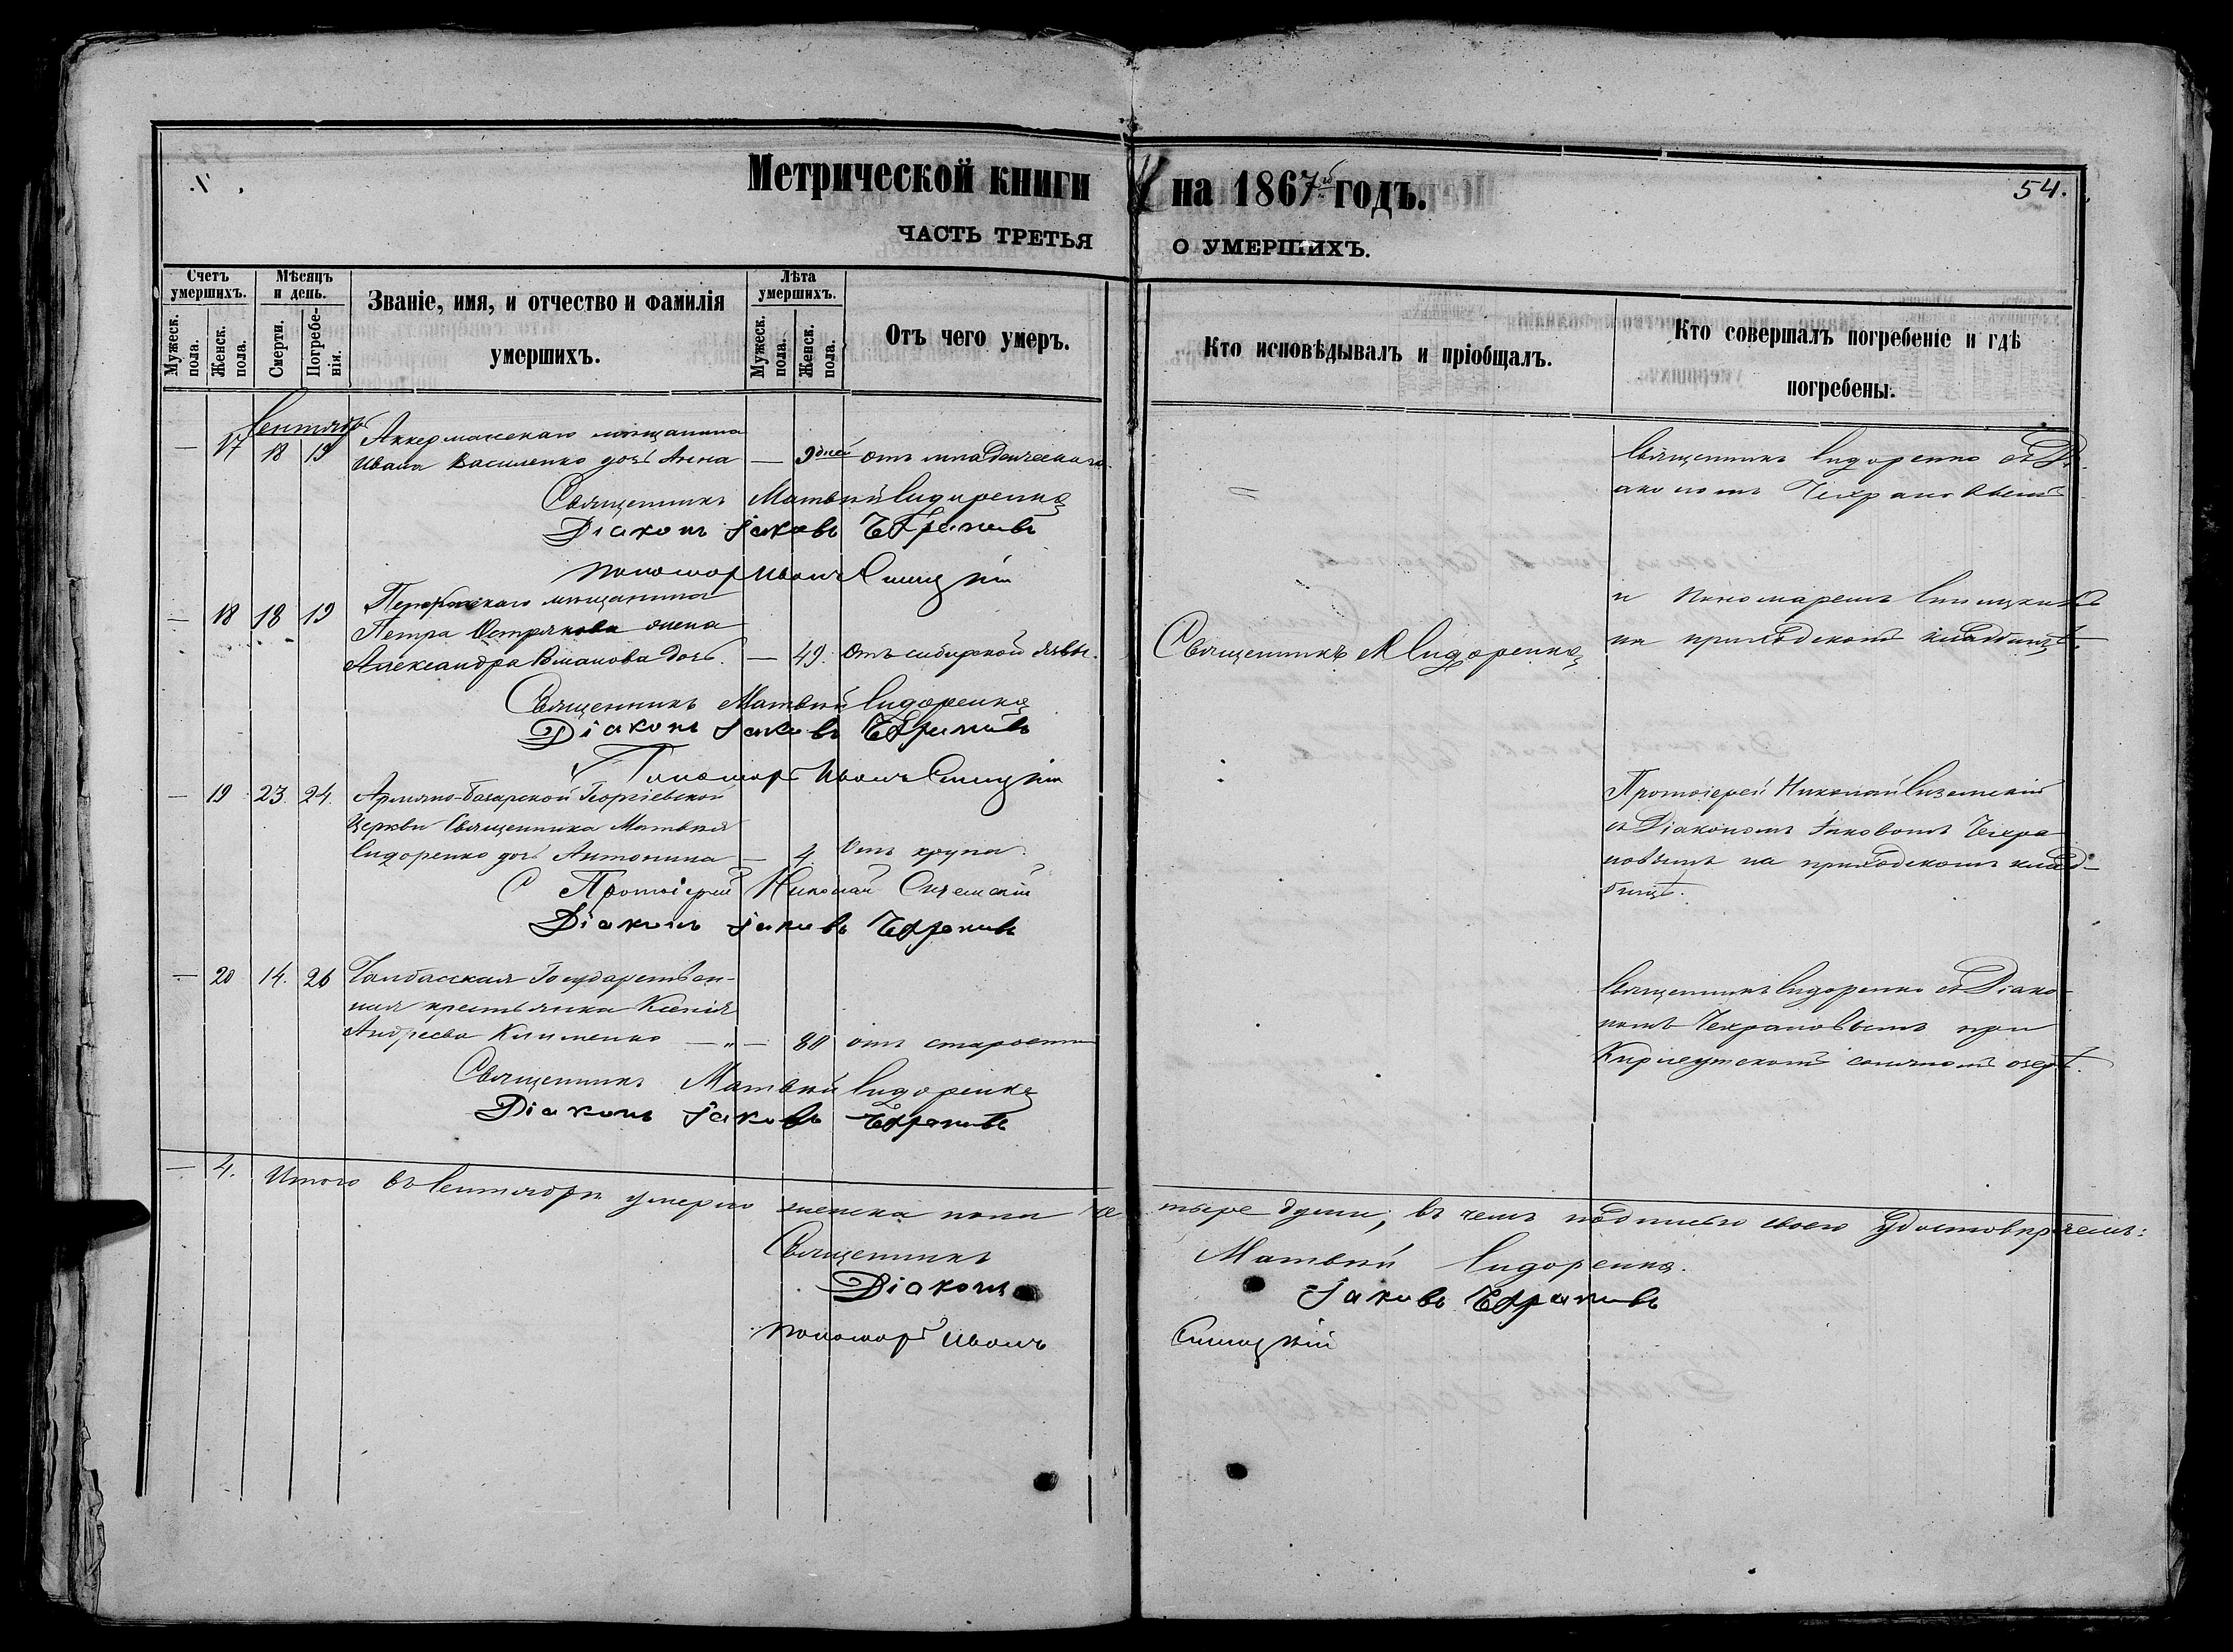 Метрической книги на 1867й годъ.
54.
ЧАСТЬ ТРЕТЬЯ О УМЕРШИХЪ.
Счетъ умершихъ.
Мужеск. пола.
Женск. пола.
Мѣсяцъ и день.
Смерти.
Погребе-нія.
Званіе, имя, и отчество и фамилія
умершихъ.
Лѣта умершихъ.
Мужеск. пола.
Женск. пола.
Отъ чего умеръ.
Кто исповѣдывалъ и пріобщалъ.
Кто совершалъ погребеніе и гдѣ
погребены.
Сентябрь
Аккерманскаго мѣщанина
— 17 18 19 Ивана Василенко дочь Анна — 9 дней отъ младенческаго.
Священникъ Сидоренко съ Ді-
акономъ Чехрановымъ
Священникъ Матвѣй Сидоренко
Діаконъ Іаковъ Чехрановъ
Пономарь Иванъ
— 18 18 19 мѣщанина
Петра Острякова жена
Александра Романова дочь. — 49. Отъ сибирской язвы.
Священникъ М Сидоренко
и Пономаремъ
на приходскомъ кладбищѣ.
Священникъ Матвѣй Сидоренко
Діаконъ Іаковъ Чехрановъ
Пономарь Иванъ
— 19 23. 24. Армяно-Базарской Георгіевской
Церкви Священника Матвѣя
Сидоренко дочь Антонина — 4. Отъ крупа.
Протоіерей Николай
съ Діакономъ Іаковомъ Чехра-
новымъ на приходскомъ клад-
бищѣ.
Протоіерей Николай
Діаконъ Іаковъ Чехрановъ
— 20 14. 26 Государствен-
ная крестьянка Ксенія
Андреева Клименко — „ — 80 отъ старости
Священникъ Сидоренко съ Діако-
номъ Чехрановымъ при
соляномъ озерѣ.
Священникъ Матвѣй Сидоренко
Діаконъ Іаковъ Чехрановъ
— 4. Итого въ Сентябрѣ умерло женска пола четыре души, въ чемъ подписью своею удостовѣряемъ:
Священникъ Матвѣй Сидоренко.
Діаконъ Іаковъ Чехрановъ
Пономарь Иванъ